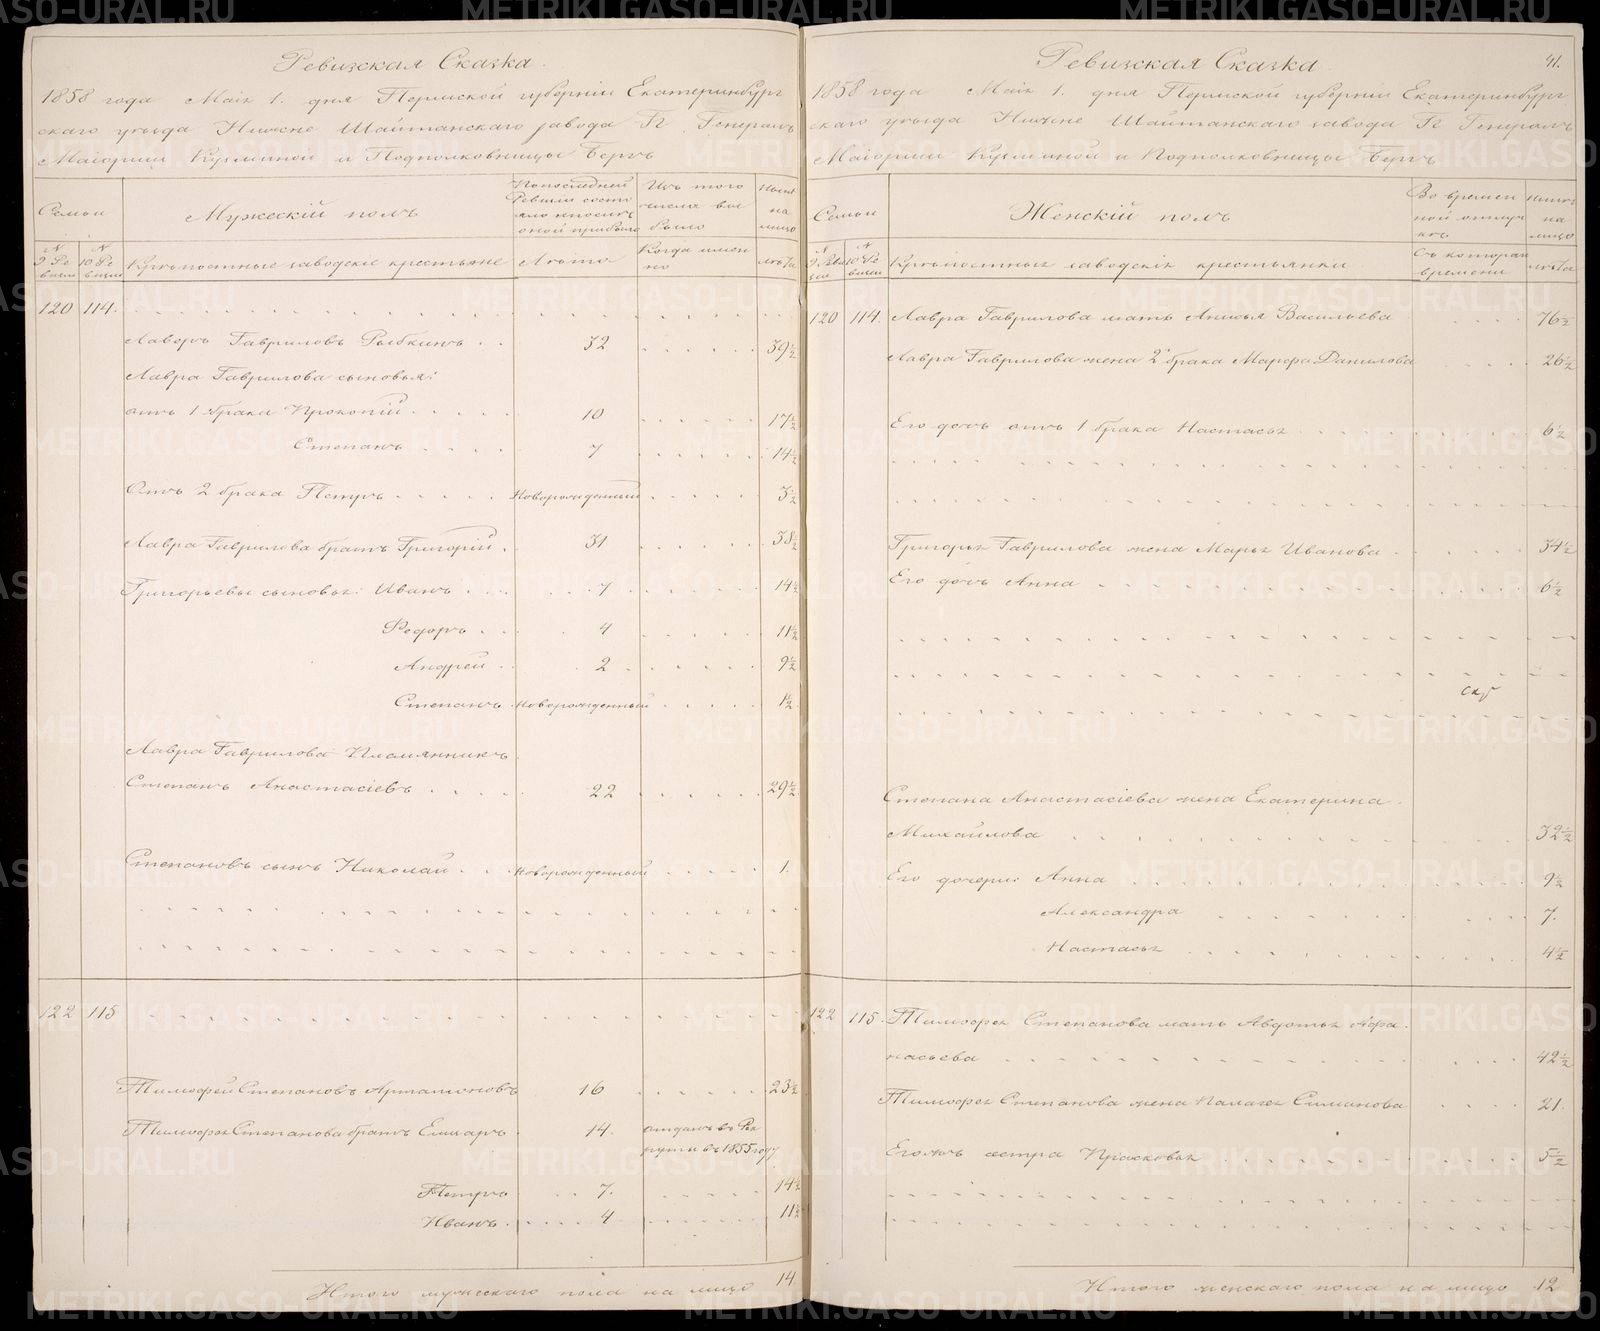 Ревизская Сказка.
1858 года Маія 1. дня Пермской губерніи Екатеринбург
скаго уѣзда Нижне Шайтанскаго завода Гг. Генералъ
Маіорши Кузминой и Подполковницы Бергъ
Семьи
Мужескій полъ
По последней Ревизіи состояло и после оной прибыло
Изъ того числа выбыло
Ныне на лицо
N 9 Ревизіи
N 10 Ревизіи
Крѣпостные заводские крестьяне
Лѣта
Когда именно
Лѣта
120 114.
Лаверъ Гавриловъ Рыбкинъ . . 32 39½
Лавра Гаврилова сыновья:
отъ 1 брака Прокопій 10 17½
Степанъ 7 14½
Отъ 2 брака Петръ Новорожденный 3½
Лавра Гаврилова братъ Григорій . 31 38½
Григорьевы сыновья: Иванъ 7 14½
Федоръ 4 11½
Андрей 2 9½
Степанъ Новорожденный 1½
Лавра Гаврилова Племянникъ
Степанъ Анастасіевъ 22 29½
Степановъ сынъ Николай Новорожденный 1.
122 115
Тимофей Степановъ Артамоновъ 16 23½
Тимофея Степанова братъ Елизаръ 14. отданъ въ Рек
руты въ 1855 году
Петръ 7. 14½
Иванъ 4 11½
Итого мужескаго пола на лицо 14
Ревизская Сказка 41.
1858 года Маія 1. дня Пермской губерніи Екатеринбург
скаго уѣзда Нижне Шайтанскаго завода Гг. Генералъ
Маіорши Кузминой и Подполковницы Бергъ
Семьи
Женскій полъ
Во времен
ной отлуч
кѣ
Ныне на лицо
N 9 Ревизіи
N 10 Ревизіи
Крѣпостныя заводскія крестьянки
Съ котораго времени
Лѣта
120 114. Лавра Гаврилова мать Анисья Васильева 76½
Лавра Гаврилова жена 2 брака Марфа Данилова 26½
Его дочь отъ 1 брака Настасья 6½
Григорья Гаврилова жена Марья Иванова 34½
Его дочь Анна 6½
Степана Анастасіева жена Екатерина
Михайлова 32½
Его дочери: Анна 9½
Александра 7.
Настасья 4½
122 115. Тимофея Степанова мать Авдотья Афа
насьева 42½
Тимофея Степанова жена Палагея Симанова 21.
Его же сестра Прасковья 5½
Итого женскаго пола на лицо 12
METRIKI.GASO-URAL.RU